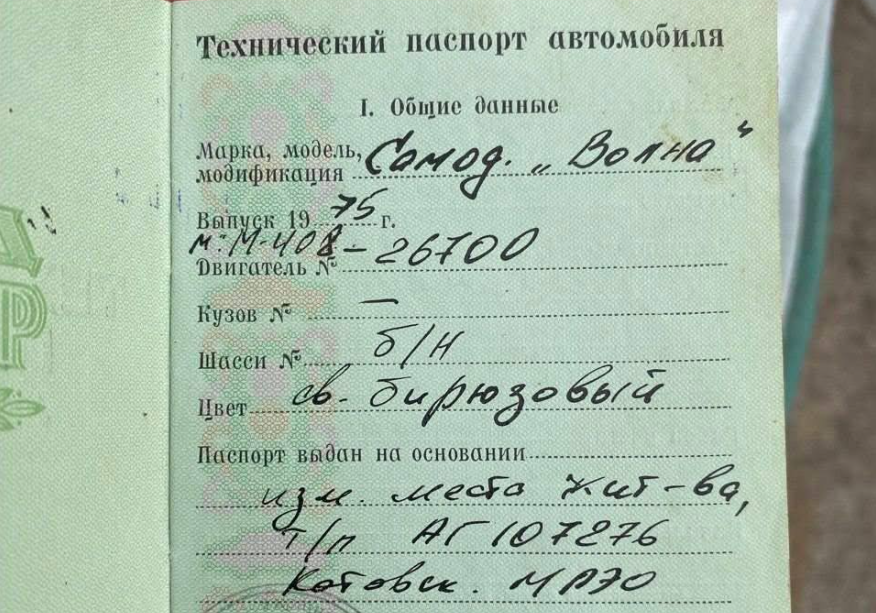 Технический паспорт автомобиля
I. Общие данные
Марка, модель, Самод. „Волна"
модификация
Выпуск 1975 г.
м: М-408-26700
Двигатель №
Кузов № —
Шасси № б/н
Цвет св. бирюзовый
Паспорт выдан на основании
изм. места жит-ва,
т/п АГ 107276
Котовск. МРЭО